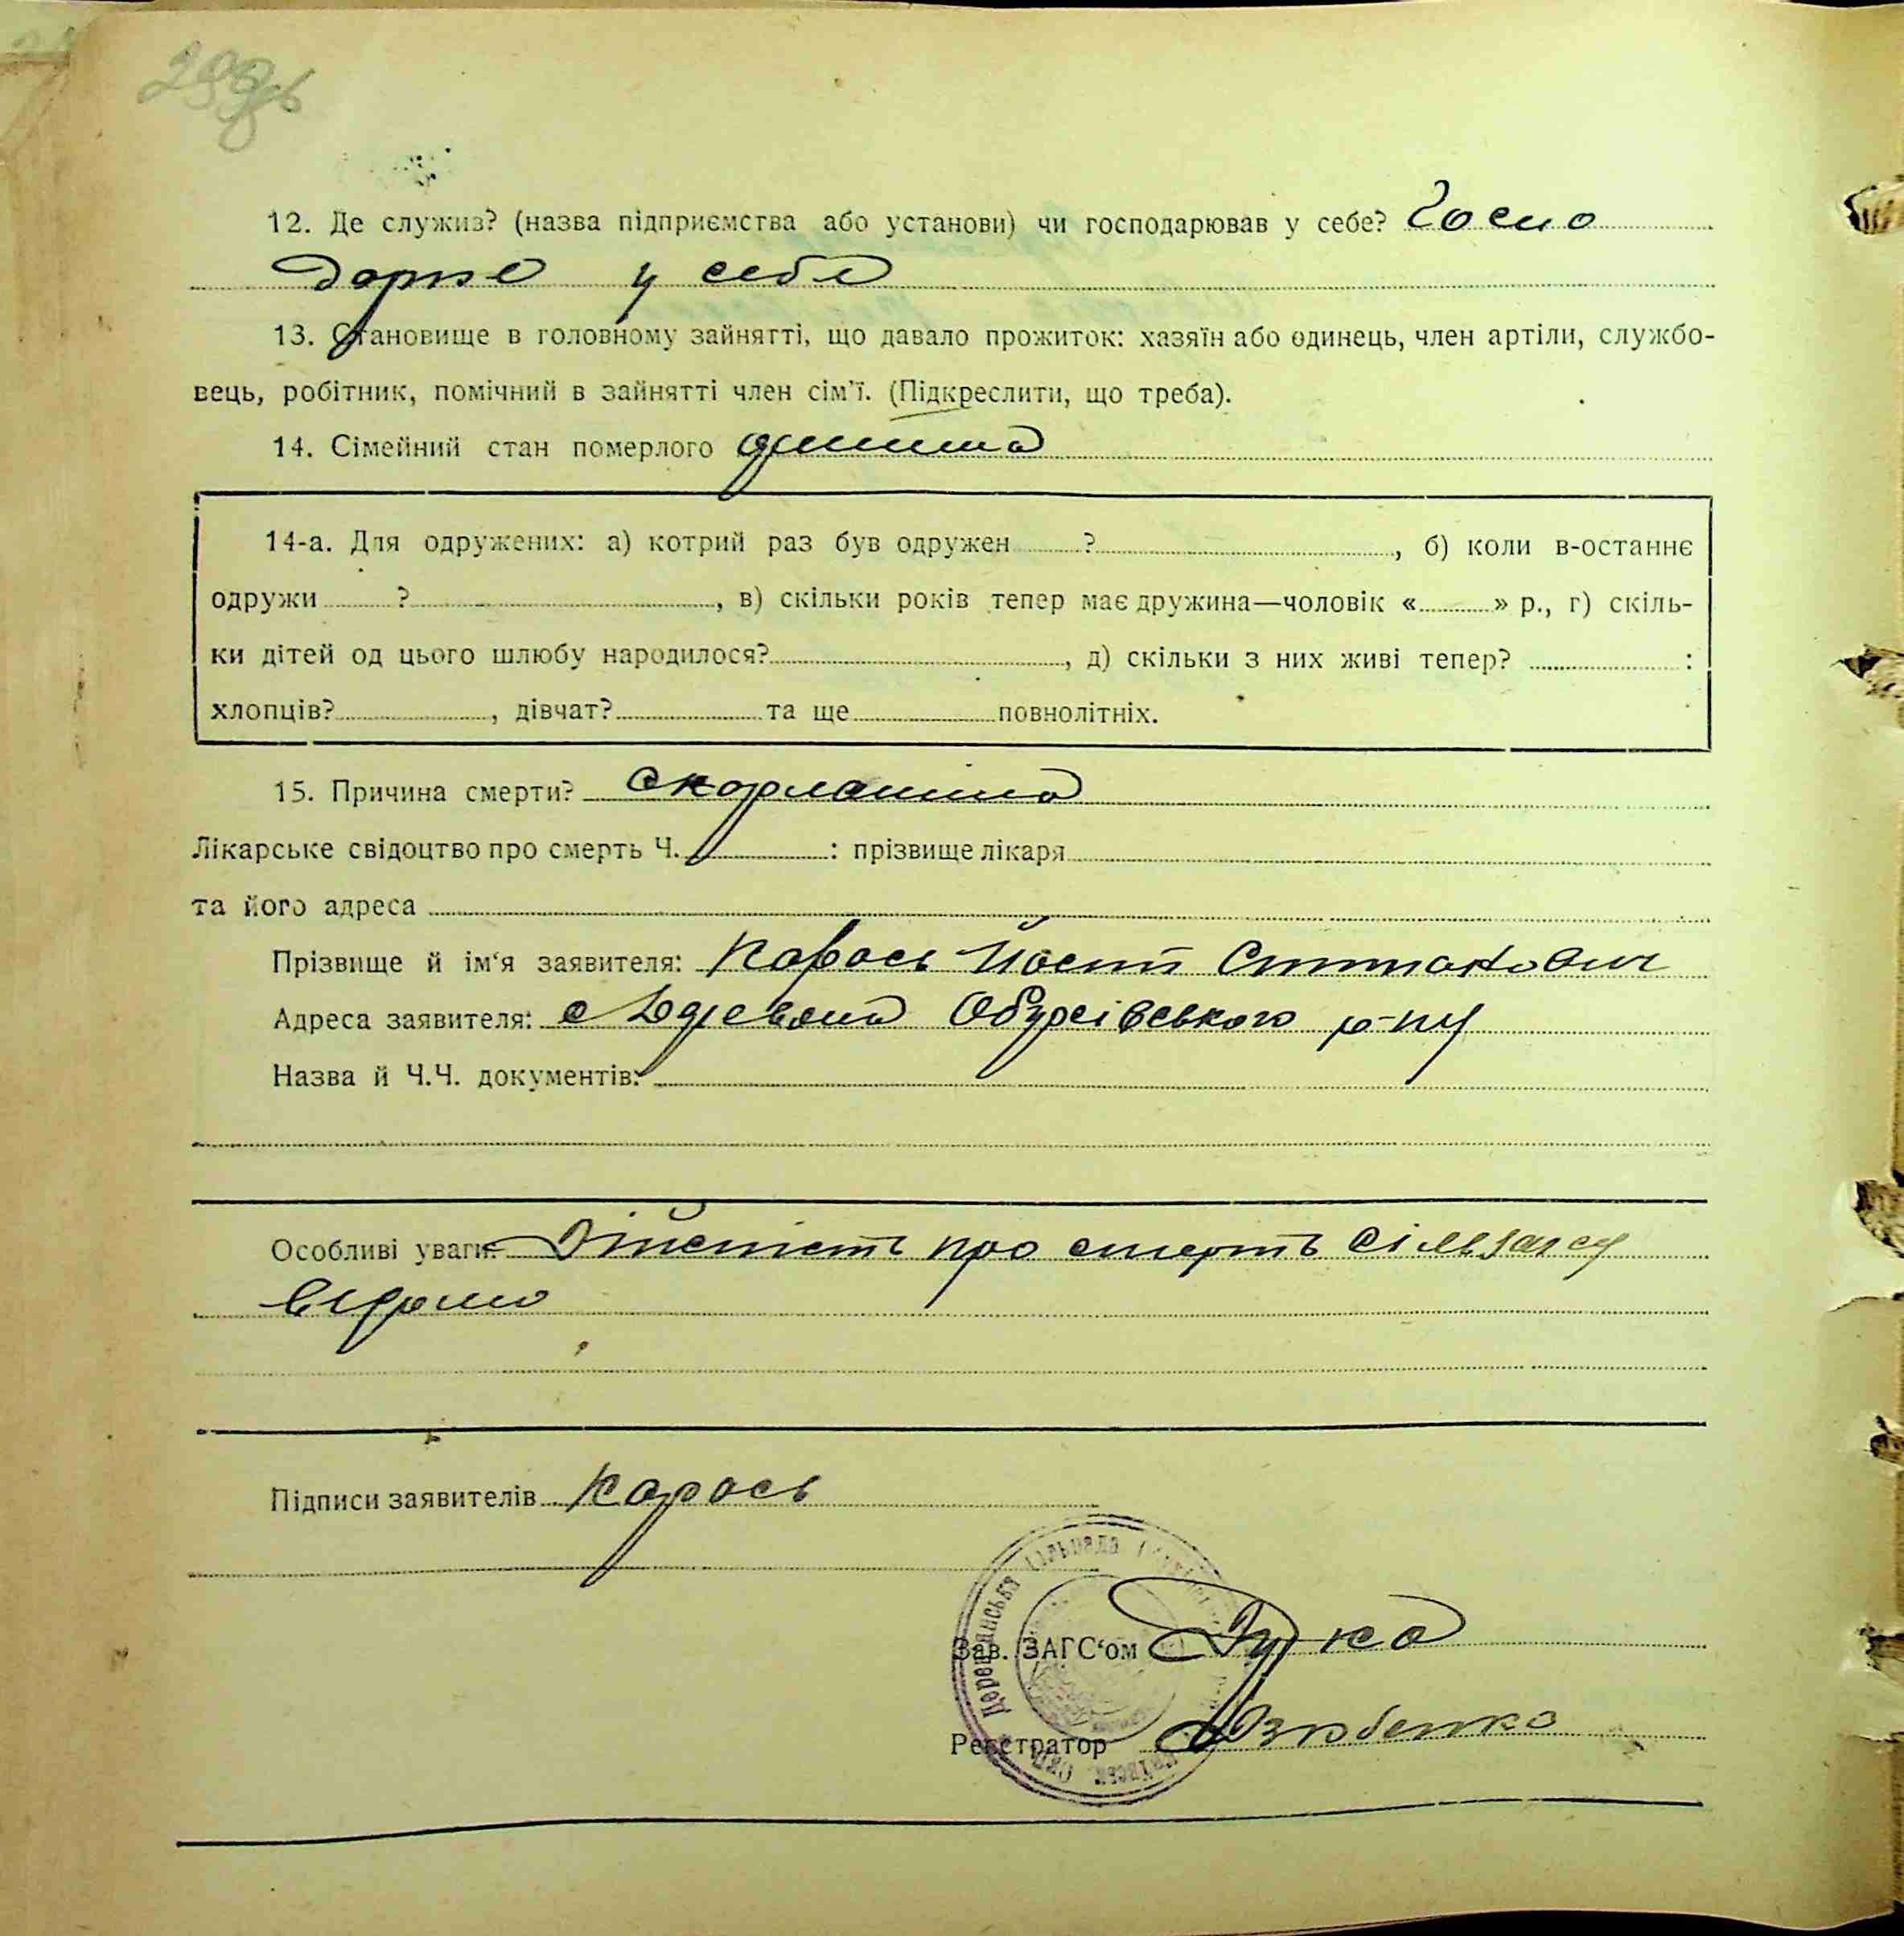 12. Де служив? (назва підприємства або установи) чи господарював у себе? Госпо
дарює у себе
13. Становище в головному зайнятті, що давало прожиток: хазяїн або одинець, член артіли, службо-
вець, робітник, помічний в зайнятті член сім'ї. (Підкреслити, що треба).
14. Сімейний стан померлого дитина
14-а. Для одружених: а) котрий раз був одружен ? , б) коли в-останнє
одружи ? , в) скільки років тепер має дружина—чоловік « » р., г) скіль-
ки дітей од цього шлюбу народилося? , д) скільки з них живі тепер? :
хлопців? , дівчат? та ще повнолітніх.
15. Причина смерти? Скорлатина
Лікарське свідоцтво про смерть Ч. : прізвище лікаря
та його адреса
Прізвище й ім'я заявителя: Карась
Адреса заявителя: с Деревяна Обухівського р-ну
Назва й Ч.Ч. документів:
Особливі уваги: Дійсність про смерть сільзагсу
відомо
Підписи заявителів Карась
Зав. ЗАГС'ом
Реєстратор